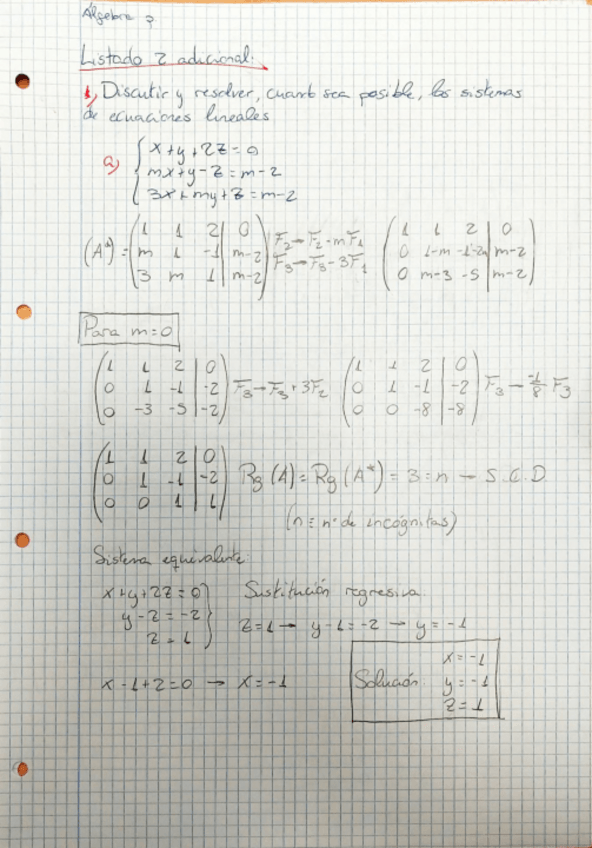 Álgebra
Listado 2 adicional.
1, Discutir y resolver, cuant sea posible, los sistemas
de ecuaciones lineales
a) { x+y+2z=0
mx+y-z=m-2
3x+my+z=m-2
(A*) = ( 1 1 2 | 0 ) ( 1 1 2 | 0 )
( m 1 -1 | m-2 ) F2→F2-mF1 ( 0 1-m -1-2m | m-2 )
( 3 m 1 | m-2 ) F3→F3-3F1 ( 0 m-3 -5 | m-2 )
Para m=0
( 1 1 2 | 0 ) ( 1 1 2 | 0 )
( 0 1 -1 | -2 ) F3→F3+3F2 ( 0 1 -1 | -2 ) F3→ -1/8 F3
( 0 -3 -5 | -2 ) ( 0 0 -8 | -8 )
( 1 1 2 | 0 )
( 0 1 -1 | -2 ) Rg(A)=Rg(A*)=3=n → S.C.D
( 0 0 1 | 1 ) (n ≡ nº de incógnitas)
Sistema equivalente:
x+y+2z=0 } Sustitución regresiva.
y-z=-2
z=1 z=1 → y-1=-2 → y=-1
x-1+2=0 → x=-1
Solución: x=-1
y=-1
z=1